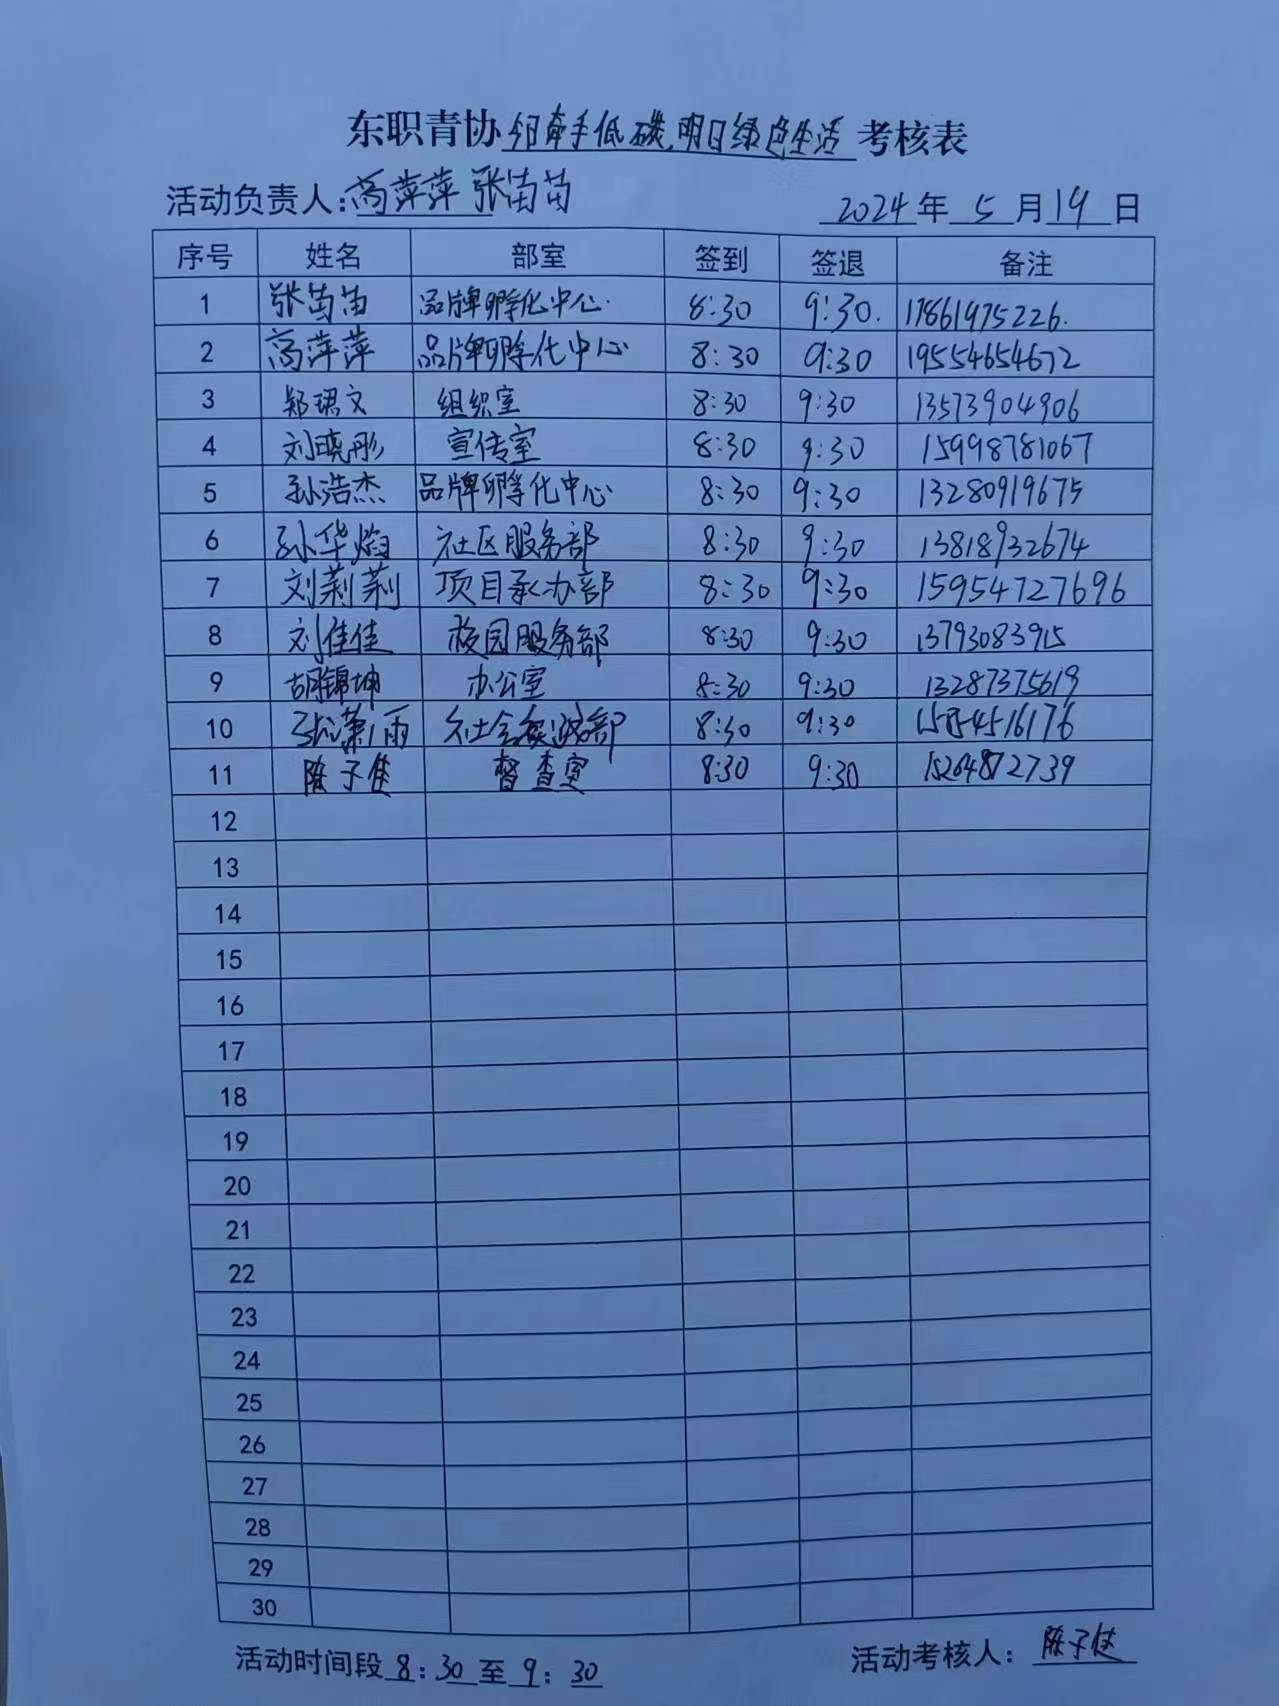 东职青协今日牵手低碳,明日绿色生活考核表
活动负责人:高萍萍 张苗苗 2024年5月19日
序号 姓名 部室 签到 签退 备注
1 张苗苗 品牌孵化中心 8:30 9:30. 17861975226.
2 高萍萍 品牌孵化中心 8:30 9:30 19554654672
3 郑珺文 组织室 8:30 9:30 13573904906
4 刘晓彤 宣传室 8:30 9:30 15998781067
5 孙浩杰 品牌孵化中心 8:30 9:30 13280919675
6 孙华焰 社区服务部 8:30 9:30 13818932674
7 刘莉莉 项目承办部 8:30 9:30 15954727696
8 刘佳佳 校园服务部 8:30 9:30 13793083915
9 胡锦坤 办公室 8:30 9:30 13287375619
10 张潇雨 社会实践部 8:30 9:30
11 陈子健 督查室 8:30 9:30
12
13
14
15
16
17
18
19
20
21
22
23
24
25
26
27
28
29
30
活动时间段8:30至9:30 活动考核人:陈子健